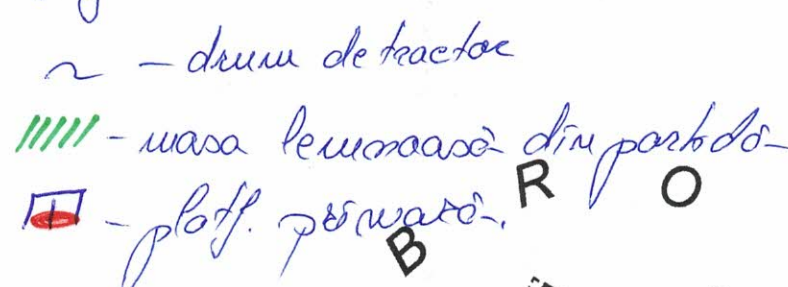 ~ - drum de tractor
- masa lemnoasă din partidă
- platf. primară.
R O
B